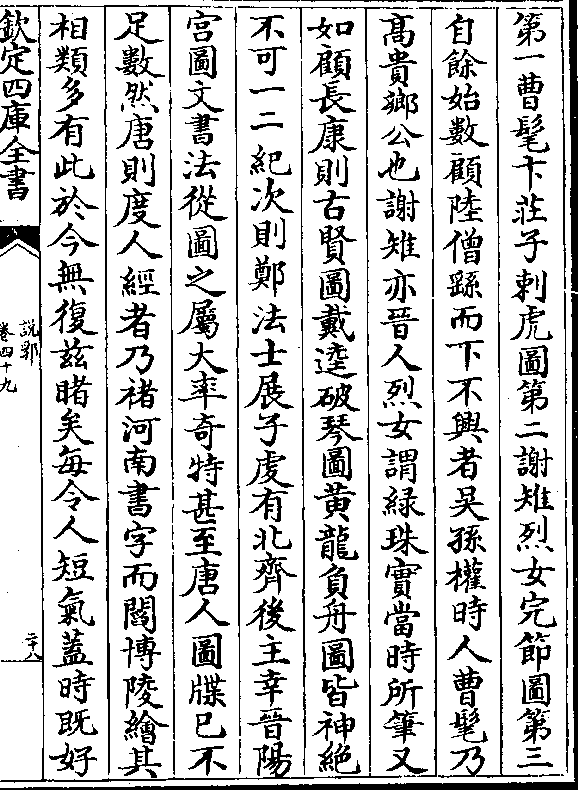 第一曹髦卞莊子刺虎圖第二謝雉烈女完節圖第三
自餘始數顧陸僧繇而下不興者吳孫權時人曹髦乃
髙貴鄉公也謝雉亦晉人烈女謂緑珠實當時所筆又
如顧長康則古賢圖戴逵破琴圖黃龍負舟圖皆神絶
不可一二紀次則鄭法士展子䖍有北齊後主幸晉陽
宮圖文書法從圖之屬大率奇特甚至唐人圖牒已不
足數然唐則度人經者乃褚河南書字而閻博陵繪其
相類多有此於今無復兹睹矣每令人短氣蓋時既好
欽定四庫全書
說郛
卷四十九
二十八